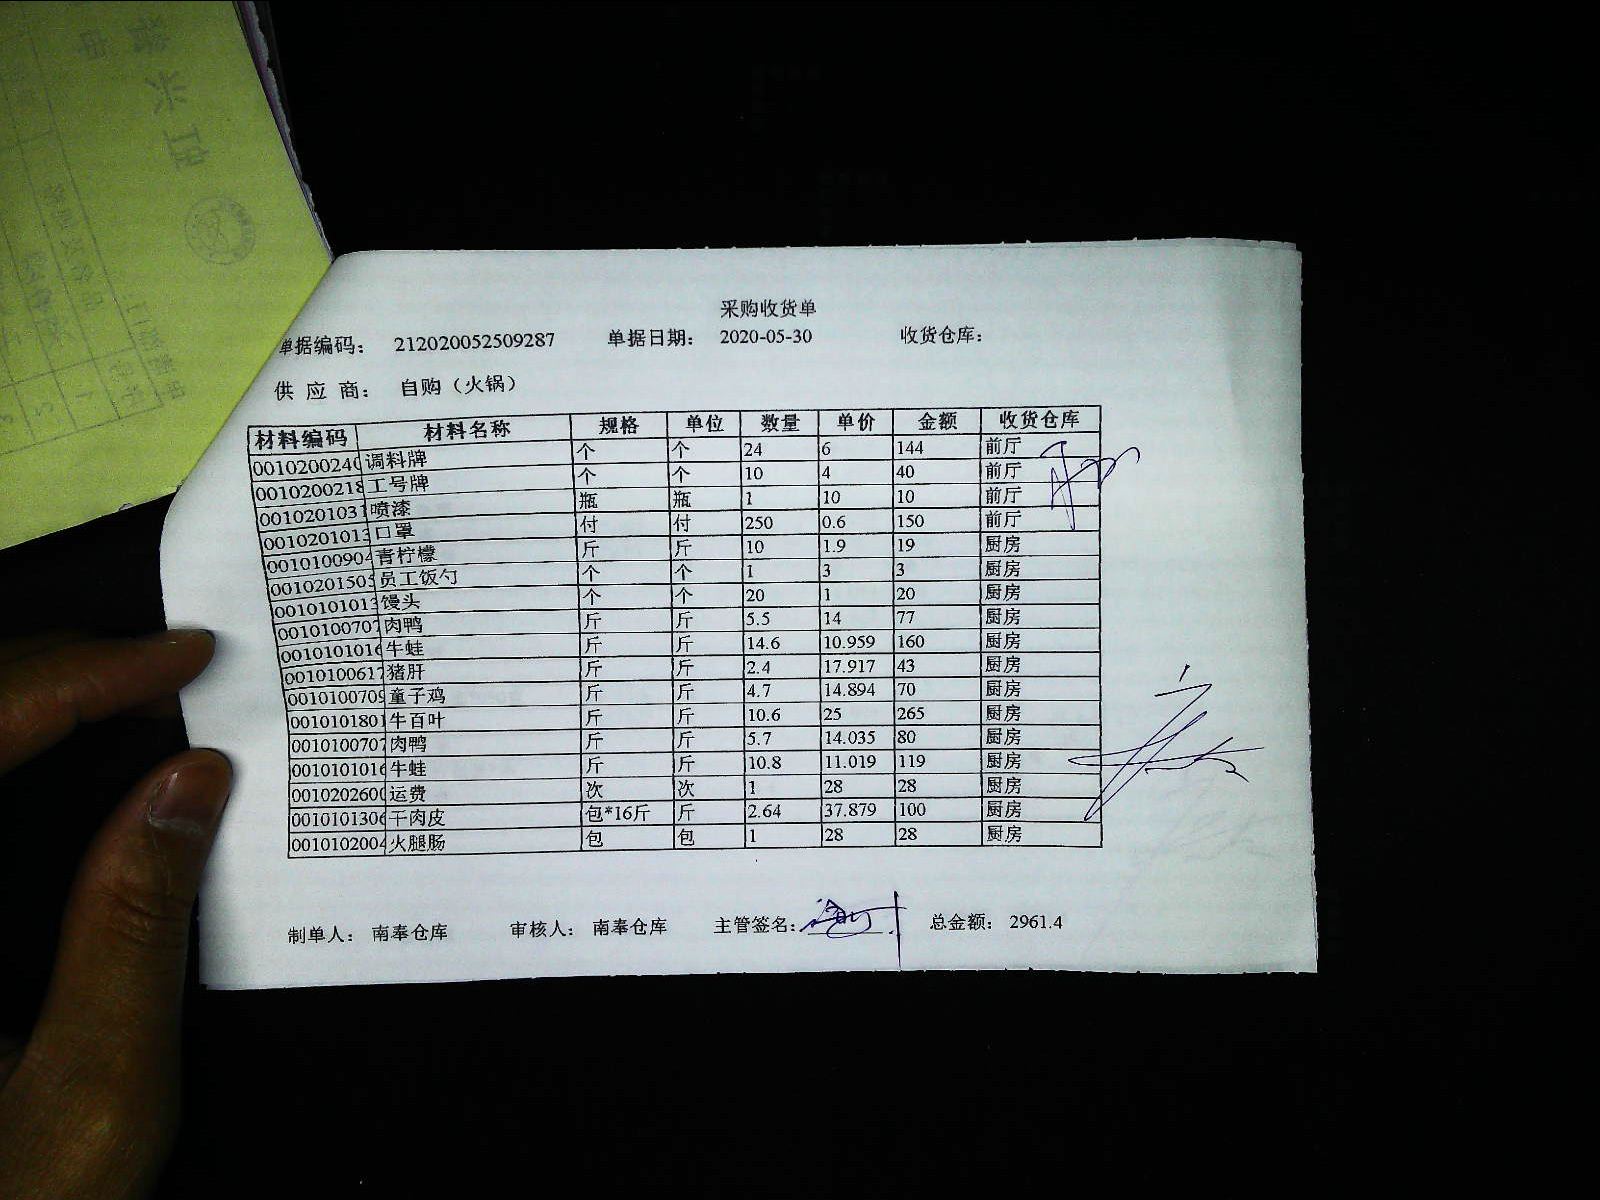 采购收货单
单据编码： 212020052509287 单据日期： 2020-05-30 收货仓库：
供 应 商： 自购（火锅）
材料编码 材料名称 规格 单位 数量 单价 金额 收货仓库
0010200240 调料牌 个 个 24 6 144 前厅
0010200218 工号牌 个 个 10 4 40 前厅
0010201031 喷漆 瓶 瓶 1 10 10 前厅
0010201013 口罩 付 付 250 0.6 150 前厅
0010100904 青柠檬 斤 斤 10 1.9 19 厨房
0010201505 员工饭勺 个 个 1 3 3 厨房
0010101013 馒头 个 个 20 1 20 厨房
0010100707 肉鸭 斤 斤 5.5 14 77 厨房
0010101016 牛蛙 斤 斤 14.6 10.959 160 厨房
0010100617 猪肝 斤 斤 2.4 17.917 43 厨房
0010100709 童子鸡 斤 斤 4.7 14.894 70 厨房
0010101801 牛百叶 斤 斤 10.6 25 265 厨房
0010100707 肉鸭 斤 斤 5.7 14.035 80 厨房
0010101016 牛蛙 斤 斤 10.8 11.019 119 厨房
0010202600 运费 次 次 1 28 28 厨房
0010101306 干肉皮 包*16斤 斤 2.64 37.879 100 厨房
0010102004 火腿肠 包 包 1 28 28 厨房
制单人： 南奉仓库 审核人： 南奉仓库 主管签名： 总金额： 2961.4